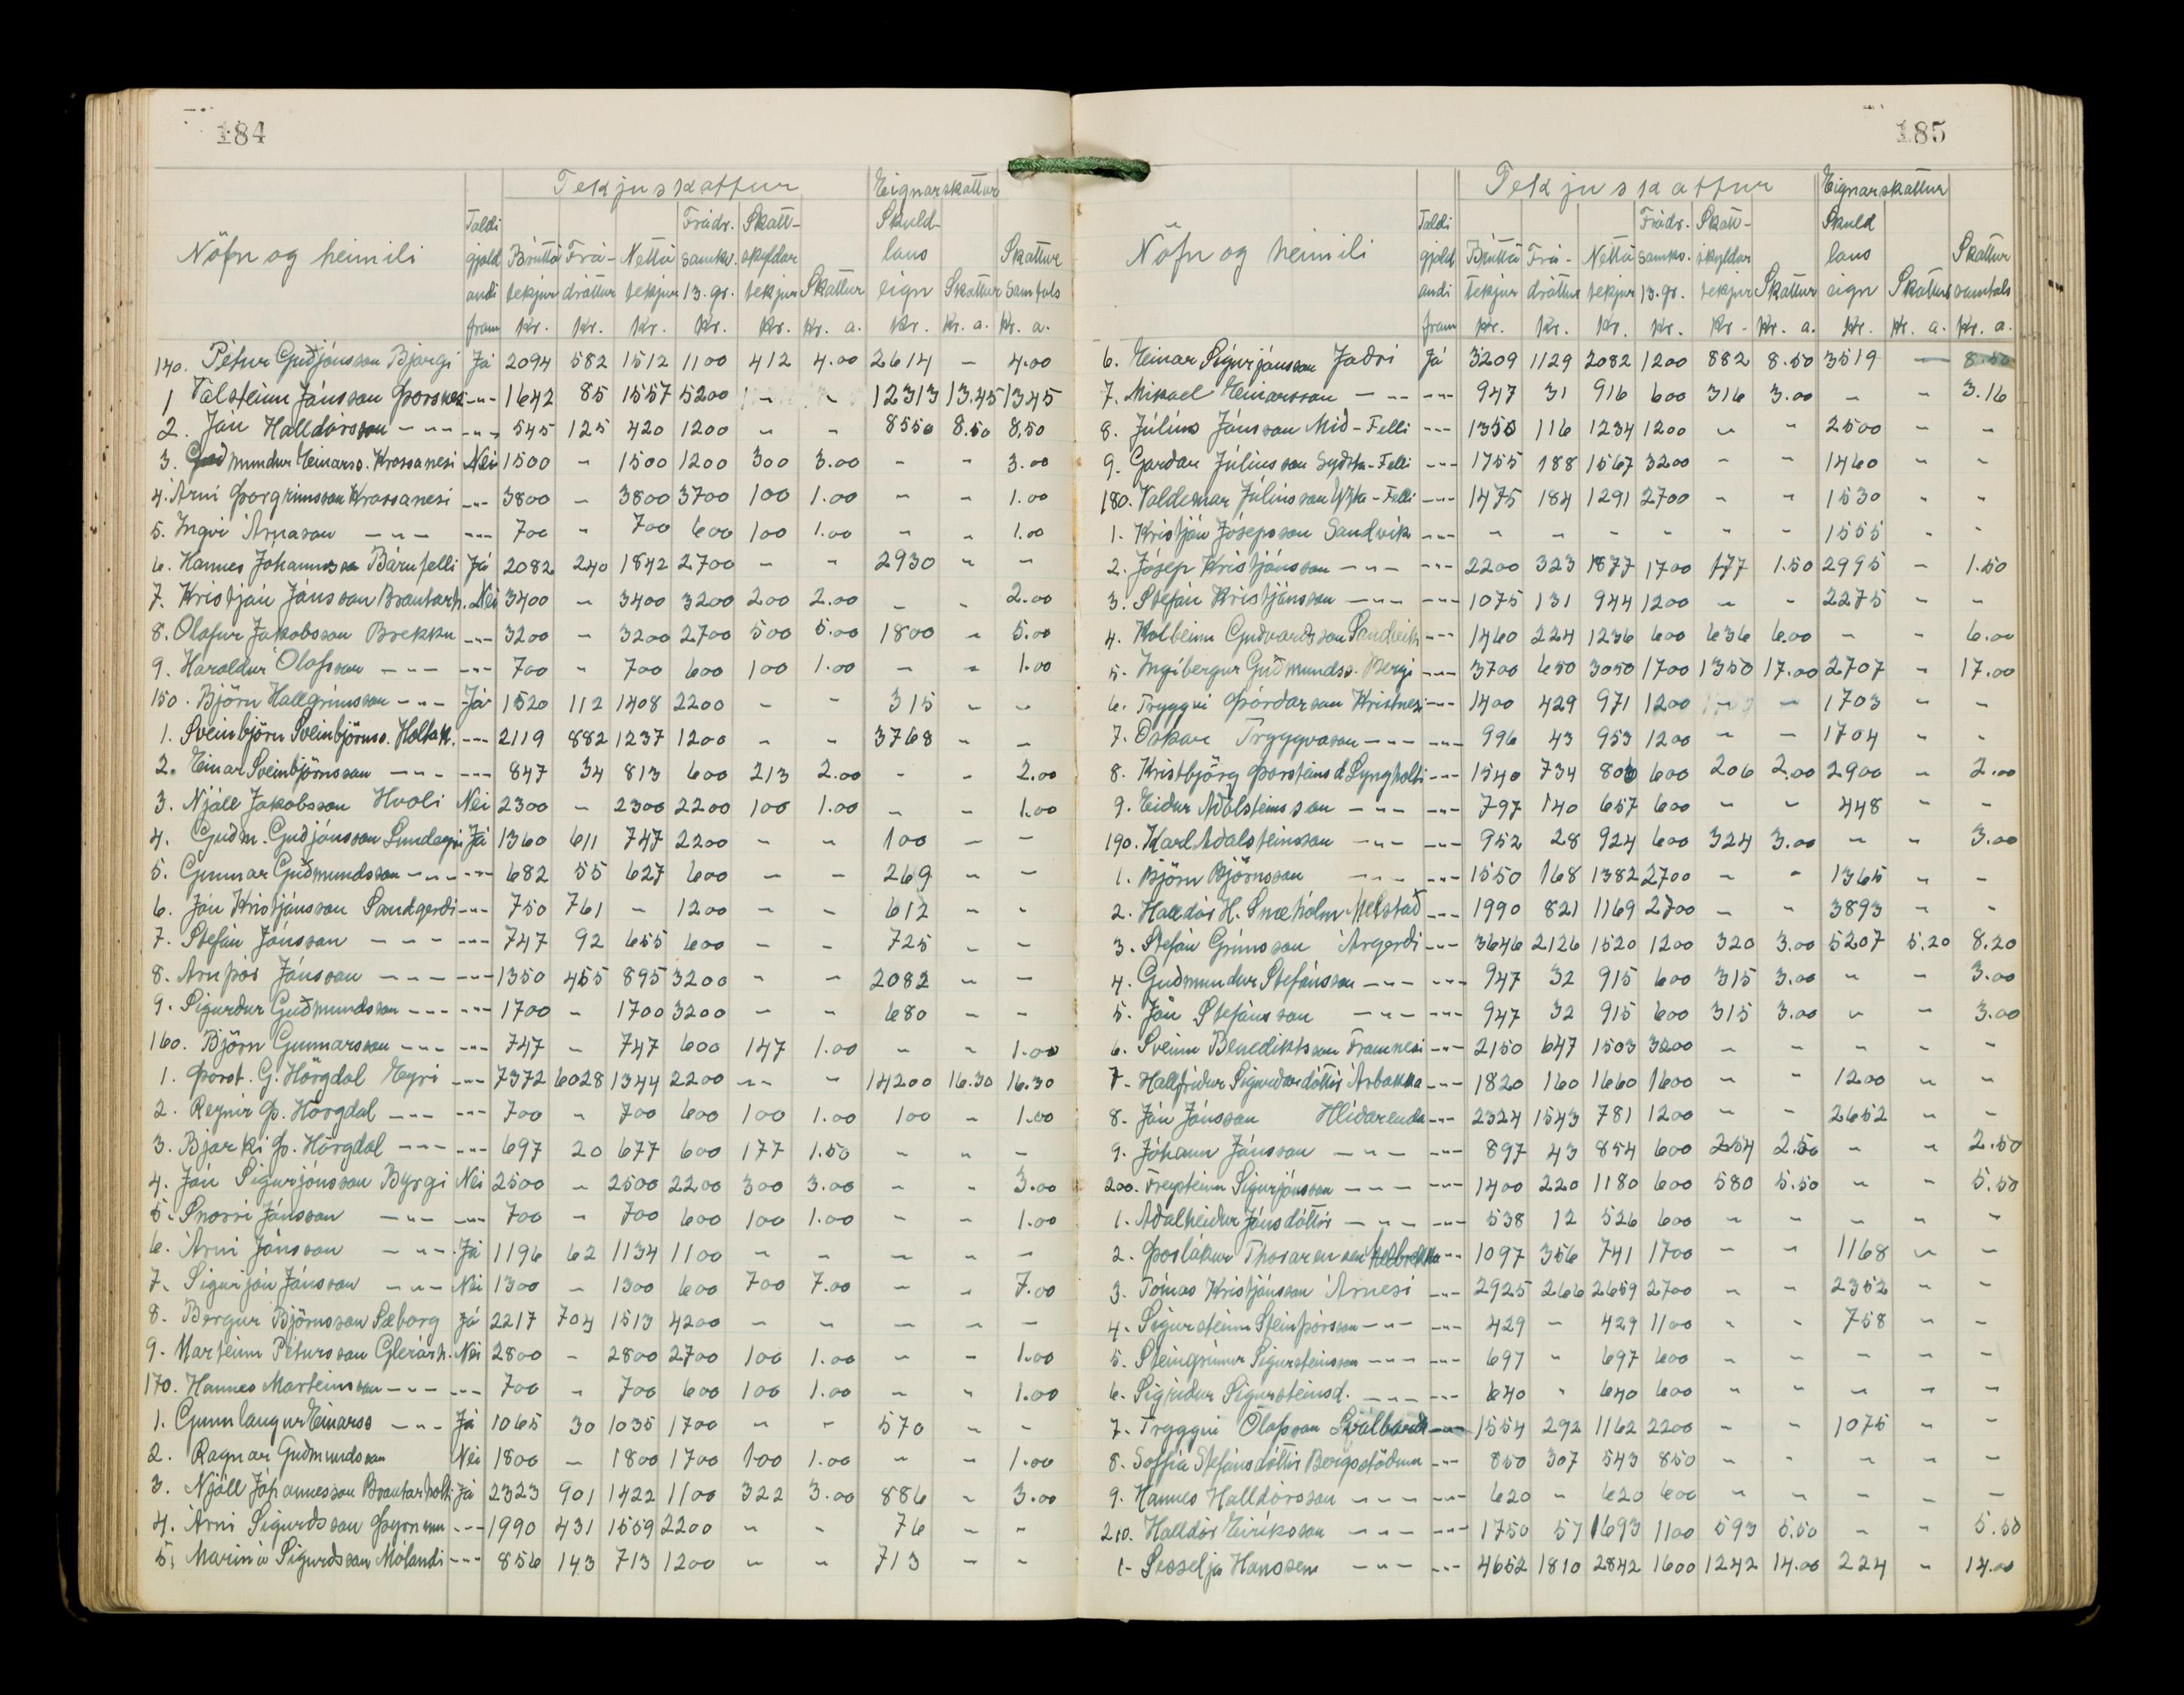 184
Tekjuskattur Eignarskattur
Nöfn og heimili Taldi gjald andi fram Brúttó tekjur Kr. Frá- dráttur Kr. Nettó tekjur Kr. Frádr. samkv. 13. gr. Kr. Skatt- skyldar tekjur Kr. Skattur Kr. a. Skuld- laus eign Kr. Skattur Kr. a. Skattur samtals Kr. a.
140. Pétur Guðjónsson Bjargi Já 2094 582 1512 1100 412 4.00 2614 – 4.00
1 Valsteinn Jónsson Þórsnesi --- 1642 85 1557 5200 – – 12313 13.45 1345
2. Jón Halldórsson --- --- 545 125 420 1200 – – 8550 8.50 8,50
3. Guðmundur Einarss. Krossanesi Nei 1500 – 1500 1200 300 3.00 – – 3.00
4. Árni Þorgrímsson Krossanesi --- 3800 – 3800 3700 100 1.00 – – 1.00
5. Ingvi Árnason --- --- 700 – 700 600 100 1.00 – – 1.00
6. Hannes Jóhannsson Bárufelli Já 2082 240 1842 2700 – – 2930 – –
7. Kristján Jónsson Brautarh. Nei 3400 – 3400 3200 200 2.00 – – 2.00
8. Ólafur Jakobsson Brekku --- 3200 – 3200 2700 500 5.00 1800 – 5.00
9. Haraldur Ólafsson --- --- 700 – 700 600 100 1.00 – – 1.00
150. Björn Hallgrímsson --- Já 1520 112 1408 2200 – – 315 – –
1. Sveinbjörn Sveinbjörnss. Holtak. --- 2119 882 1237 1200 – – 3768 – –
2. Einar Sveinbjörnsson --- --- 847 34 813 600 213 2.00 – – 2.00
3. Njáll Jakobsson Hvoli Nei 2300 – 2300 2200 100 1.00 – – 1.00
4. Guðm. Guðjónsson Lundagri Já 1360 611 747 2200 – – 100 – –
5. Gunnar Guðmundsson --- --- 682 55 627 600 – – 269 – –
6. Jón Kristjánsson Sandgerði --- 750 761 – 1200 – – 612 – –
7. Stefán Jónsson --- --- 747 92 655 600 – – 725 – –
8. Arnþór Jónsson --- --- 1350 455 895 3200 – – 2082 – –
9. Sigurður Guðmundsson --- --- 1700 – 1700 3200 – – 680 – –
160. Björn Gunnarsson --- --- 747 – 747 600 147 1.00 – – 1.00
1. Þorst. G. Hörgdal Eyri --- 7372 6028 1344 2200 – – 14200 16.30 16.30
2. Reynir Þ. Hörgdal --- --- 700 – 700 600 100 1.00 100 – 1.00
3. Bjarki Þ. Hörgdal --- --- 697 20 677 600 177 1.50 – – –
4. Jón Sigurjónsson Byrgi Nei 2500 – 2500 2200 300 3.00 – – 3.00
5. Snorri Jónsson --- --- 700 – 700 600 100 1.00 – – 1.00
6. Árni Jónsson --- Já 1196 62 1134 1100 – – – – –
7. Sigurjón Jónsson --- Nei 1300 – 1300 600 700 7.00 – – 7.00
8. Bergur Björnsson Sæborg Já 2217 704 1513 4200 – – – – –
9. Marteinn Pétursson Glerárh. Nei 2800 – 2800 2700 100 1.00 – – 1.00
170. Hannes Marteinsson --- --- 700 – 700 600 100 1.00 – – 1.00
1. Gunnlaugur Einarss --- Já 1065 30 1035 1700 – – 570 – –
2. Ragnar Guðmundsson Nei 1800 – 1800 1700 100 1.00 – – 1.00
3. Njáll Jóhannesson Brautarholti Já 2323 901 1422 1100 322 3.00 886 – 3.00
4. Árni Sigurðsson Þyrnum --- 1990 431 1559 2200 – – 76 – –
5. Marinó Sigurðsson Mólandi --- 856 143 713 1200 – – 713 – –
185
Tekjuskattur Eignarskattur
Nöfn og heimili Taldi gjald andi fram Brúttó tekjur Kr. Frá- dráttur Kr. Nettó tekjur Kr. Frádr. samkv. 13. gr. Kr. Skatt- skyldar tekjur Kr. Skattur Kr. a. Skuld laus eign Kr. Skattur Kr. a. Skattur samtals Kr. a.
6. Einar Sigurjónsson Jaðri Já 3209 1129 2082 1200 882 8.50 3519 – 8.50
7. Mikael Einarsson --- --- 947 31 916 600 316 3.00 – – 3.16
8. Júlíus Jónsson Mið-Felli --- 1350 116 1234 1200 – – 2500 – –
9. Garðar Júlíusson Syðsta-Felli --- 1755 188 1567 3200 – – 1460 – –
180. Valdemar Júlíusson Ytsta-Felli --- 1475 184 1291 2700 – – 1530 – –
1. Kristján Jósepsson Sandvík --- – – – – – – 1555 – –
2. Jósep Kristjánsson --- --- 2200 323 1877 1700 177 1.50 2995 – 1.50
3. Stefán Kristjánsson --- --- 1075 131 944 1200 – – 2275 – –
4. Kolbeinn Guðvarðsson Sandvík --- 1460 224 1236 600 636 6.00 – – 6.00
5. Ingibergur Guðmundss. Bergi --- 3700 650 3050 1700 1350 17.00 2707 – 17.00
6. Tryggvi Þórðarson Kristnesi --- 1400 429 971 1200 – 1703 – –
7. Óskar Tryggvason --- --- 996 43 953 1200 – – 1704 – –
8. Kristbjörg Þorsteinsd Lyngholti --- 1540 734 806 600 206 2.00 2900 – 2.00
9. Eiður Aðalsteinsson --- --- 797 140 657 600 – – 448 – –
190. Karl Aðalsteinsson --- --- 952 28 924 600 324 3.00 – – 3.00
1. Björn Björnsson --- --- 1550 168 1382 2700 – – 1365 – –
2. Halldór H. Snæhólm Melstað --- 1990 821 1169 2700 – – 3893 – –
3. Stefán Grímsson Árgerði --- 3646 2126 1520 1200 320 3.00 5207 5.20 8.20
4. Guðmundur Stefánsson --- --- 947 32 915 600 315 3.00 – – 3.00
5. Jón Stefánsson --- --- 947 32 915 600 315 3.00 – – 3.00
6. Sveinn Benediktsson Framnesi --- 2150 647 1503 3200 – – – – –
7. Hallfríður Sigurðardóttir Árbakka --- 1820 160 1660 1600 – – 1200 – –
8. Jón Jónsson Hlíðarenda --- 2324 1543 781 1200 – – 2652 – –
9. Jóhann Jónsson --- --- 897 43 854 600 254 2.50 – – 2.50
200. Freysteinn Sigurjónsson --- --- 1400 220 1180 600 580 5.50 – – 5.50
1. Aðalheiður Jónsdóttir --- --- 538 12 526 600 – – – – –
2. Þorlákur Thorarensen --- 1097 356 741 1700 – – 1168 – –
3. Tómas Kristjánsson Árnesi --- 2925 266 2659 2700 – – 2352 – –
4. Sigursteinn Steinþórsson --- --- 429 – 429 1100 – – 758 – –
5. Steingrímur Sigursteinsson --- --- 697 – 697 600 – – – – –
6. Sigríður Sigursteinsd. --- --- 640 – 640 600 – – – – –
7. Tryggvi Ólafsson Svalbarði --- 1554 292 1162 2200 – – 1075 – –
8. Soffía Stefánsdóttir Bergsstöðum --- 850 307 543 850 – – – – –
9. Hannes Halldórsson --- --- 620 – 620 600 – – – – –
210. Halldór Eiríksson --- --- 1750 57 1693 1100 593 5.50 – – 5.50
1- Sesselja Hanssen --- --- 4652 1810 2842 1600 1242 14.00 224 – 14.00